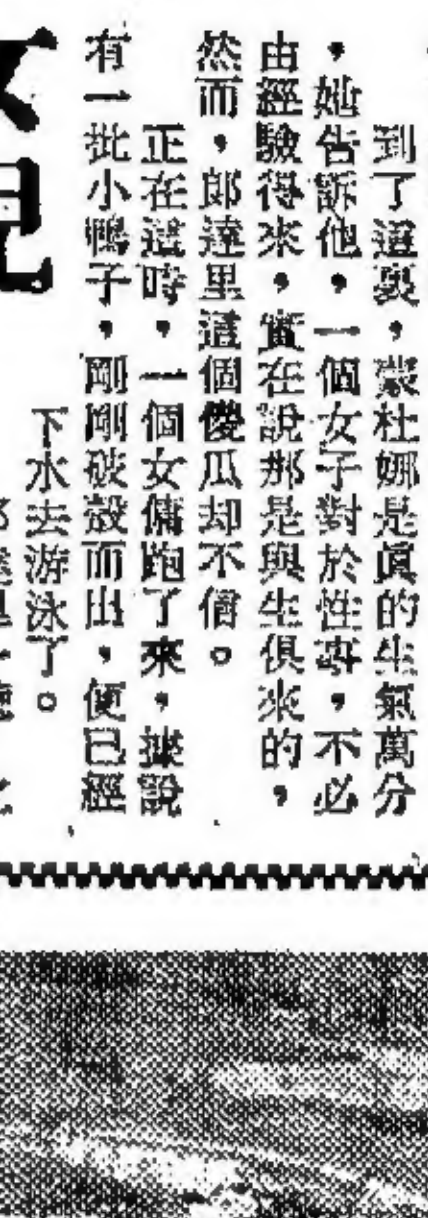 到了這裏，蒙杜娜是眞的生氣萬分
，她告訴他，一個女子對於性事，不必
由經驗得來，實在說那是與生俱來的，
然而，郎達里這個傻瓜却不信。
正在這時，一個女傭跑了來，據說
有一批小鴨子，剛剛破殼而出，便已經
下水去游泳了。